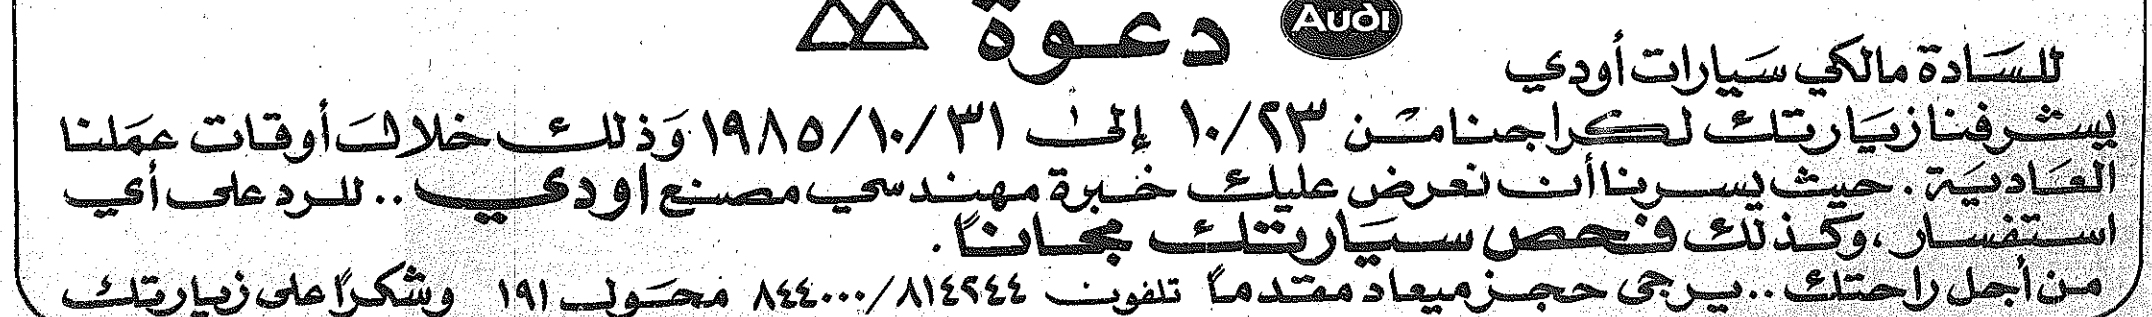 Audi دعوة
للسادة مالكي سيارات أودي
يشرفنا زيارتك لكراجنا من ١٠/٢٣ إلى ١٩٨٥/١٠/٣١ وذلك خلال أوقات عملنا
العادية . حيث يسرنا أن نعرض عليك خبرة مهندسي مصنع اودي .. للرد على أي
استفسار ، وكذلك فحص سيارتك مجاناً .
من أجل راحتك .. يرجى حجز ميعاد مقدماً تلفون ٨٤٤٠٠٠/٨١٤٢٤٤ محول ١٩١ وشكراً على زيارتك